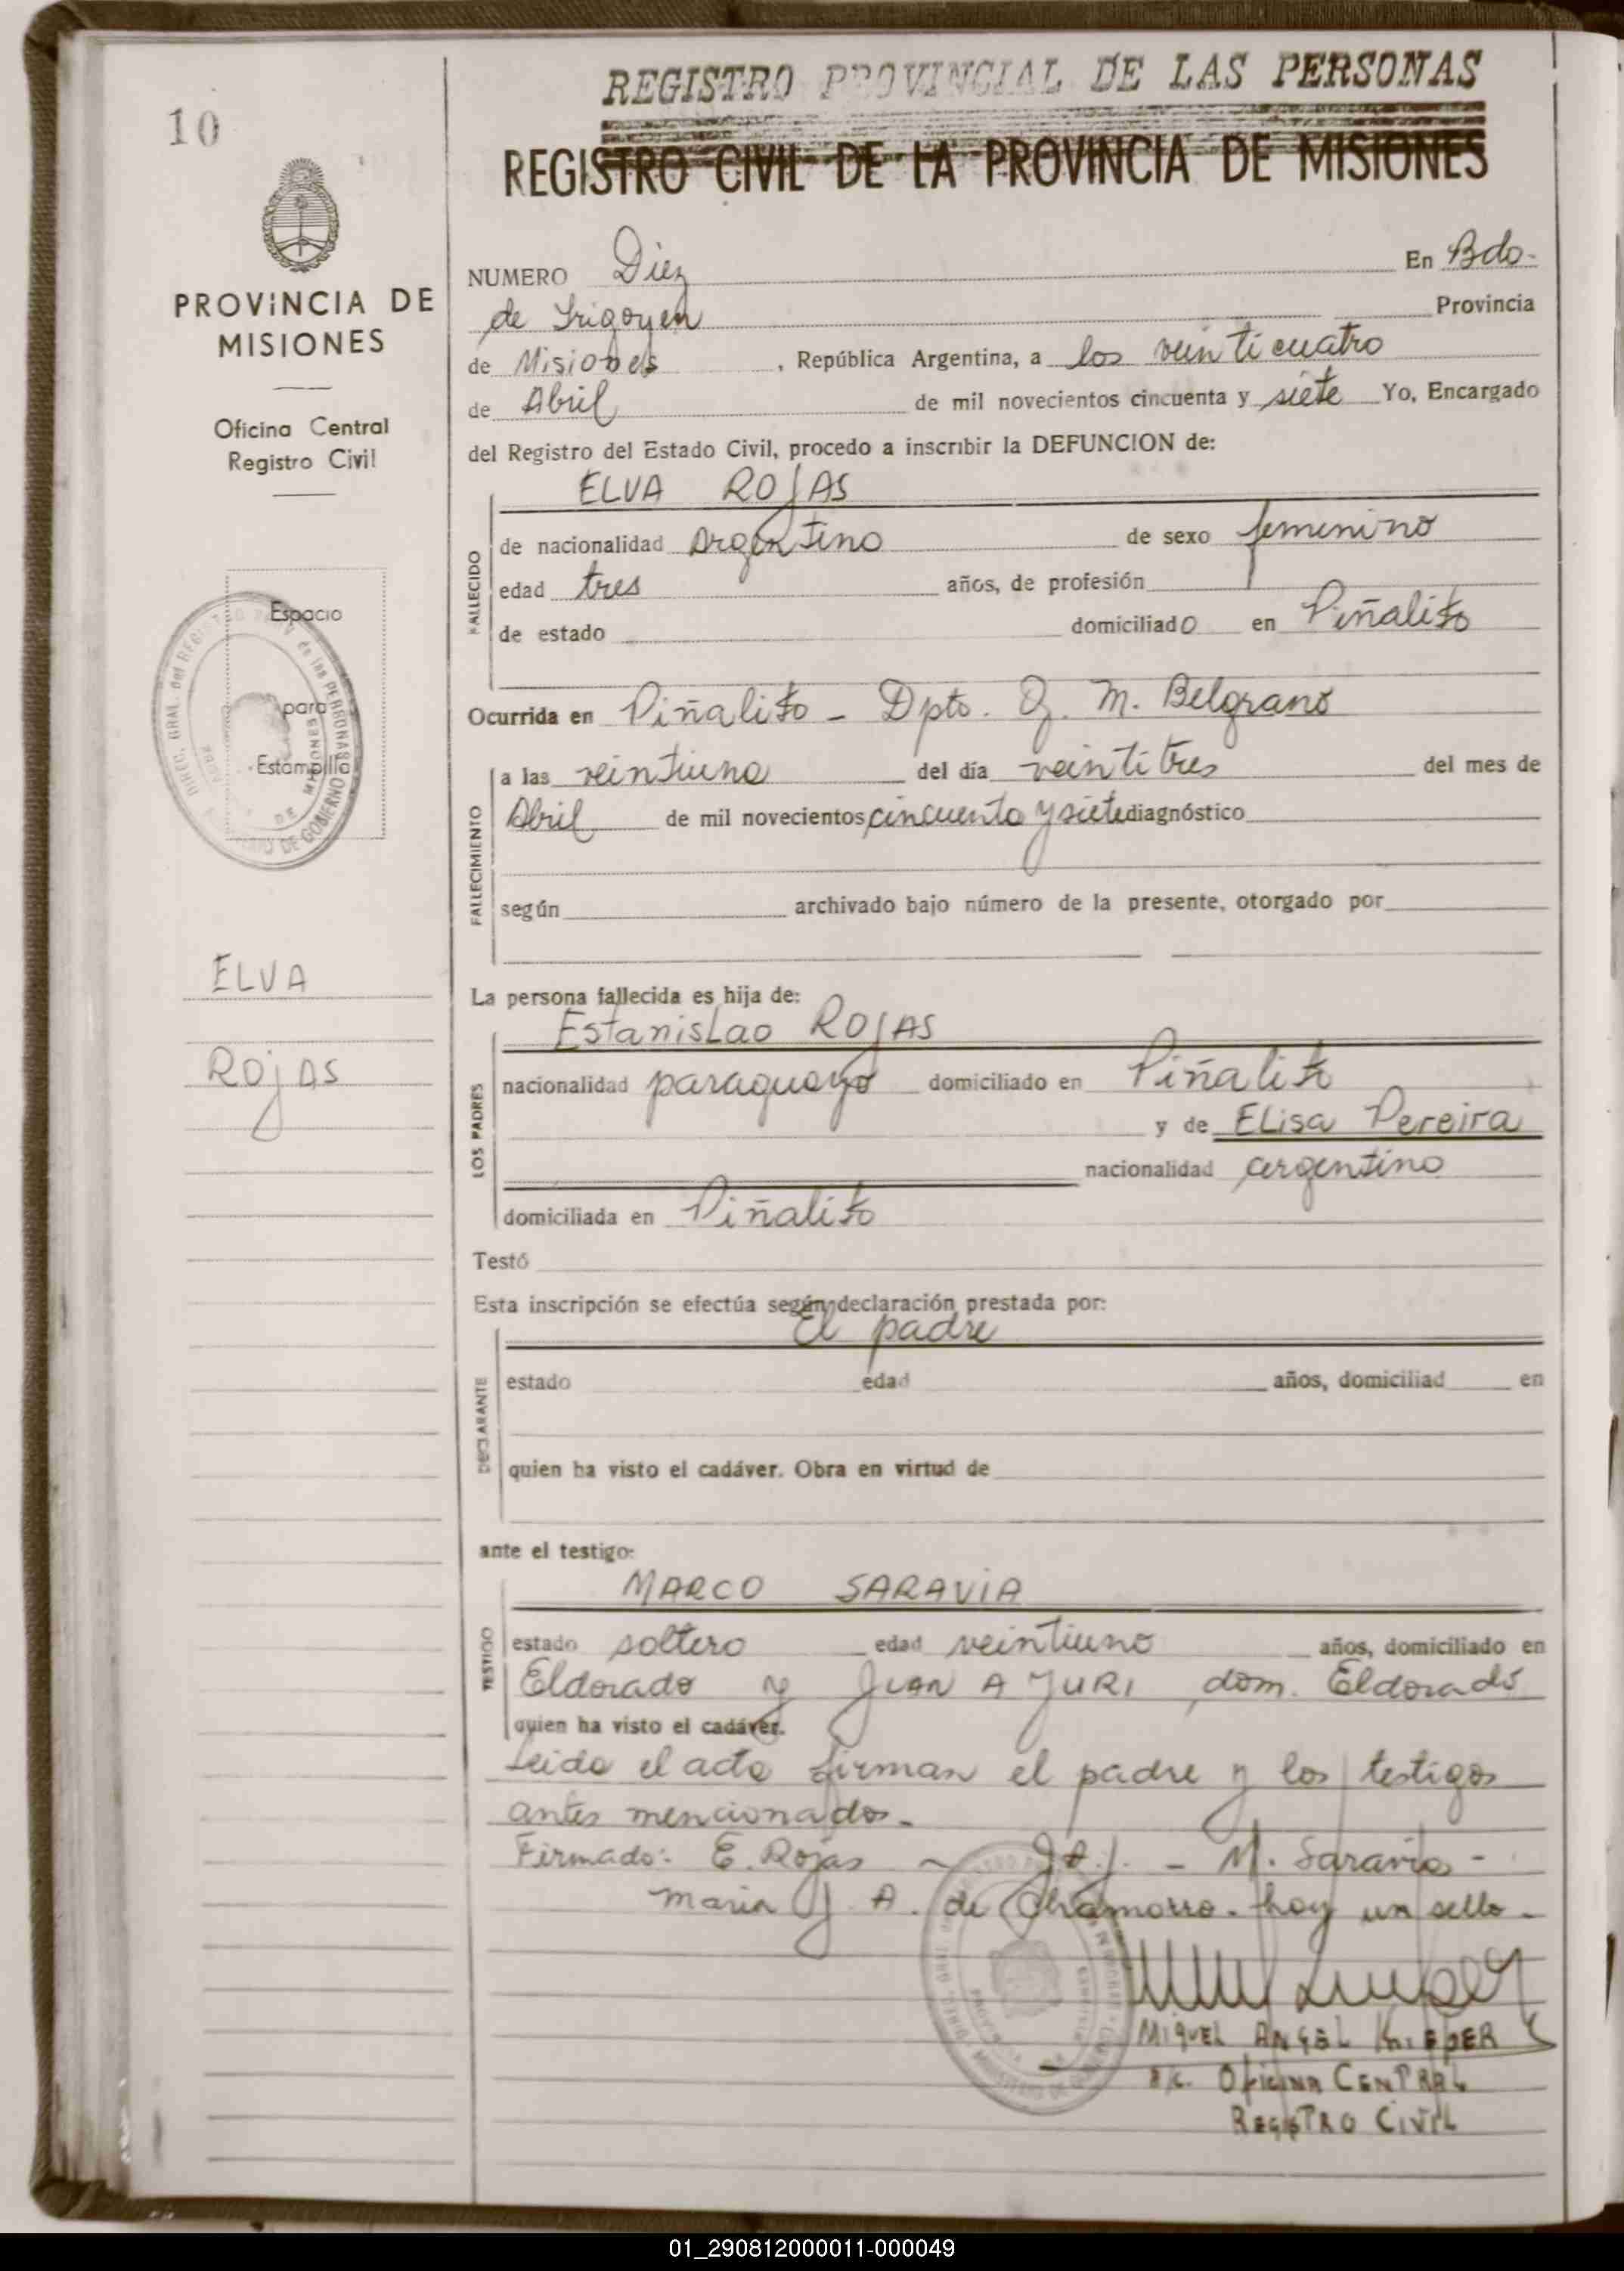 10
REGISTRO PROVINCIAL DE LAS PERSONAS
REGISTRO CIVIL DE LA PROVINCIA DE MISIONES
PROVINCIA DE
MISIONES
Oficina Central
Registro Civil
Espacio
para
Estampilla
ELVA
Rojas
NUMERO Diez En Bdo-
de Irigoyen Provincia
de Misiones, República Argentina, a los veinticuatro
de Abril de mil novecientos cincuenta y siete Yo, Encargado
del Registro del Estado Civil, procedo a inscribir la DEFUNCION de:
ELVA ROJAS
FALLECIDO
de nacionalidad argentino de sexo femenino
edad tres años, de profesión
de estado domiciliado en Piñalito
Ocurrida en Piñalito - Dpto. G. M. Belgrano
FALLECIMIENTO
a las veintiuna del día veintitres del mes de
Abril de mil novecientos cincuenta y siete diagnóstico
según archivado bajo número de la presente, otorgado por
La persona fallecida es hija de:
Estanislao ROJAS
LOS PADRES
nacionalidad paraguayo domiciliado en Piñalito
y de Elisa Pereira
nacionalidad argentina
domiciliada en Piñalito
Testó
Esta inscripción se efectúa según declaración prestada por:
El padre
DECLARANTE
estado edad años, domiciliad en
quien ha visto el cadáver. Obra en virtud de
ante el testigo:
MARCO SARAVIA
TESTIGO
estado soltero edad veintiuno años, domiciliado en
Eldorado y JUAN A YURI, dom. Eldorado
quien ha visto el cadáver.
Leida el acta firman el padre y los testigos
antes mencionados.-
Firmado: E. Rojas - - M. Saravia -
Maria J A. de Chamorro. hay un sello.-
MIGUEL ANGEL KIEPER
a/c. OFICINA CENTRAL
REGISTRO CIVIL
01_290812000011-000049